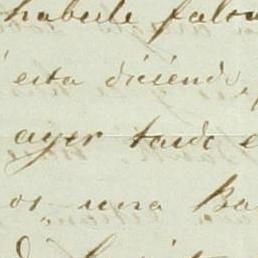 haberle falta
esta diciendo,
ayer tarde e
os una Ba